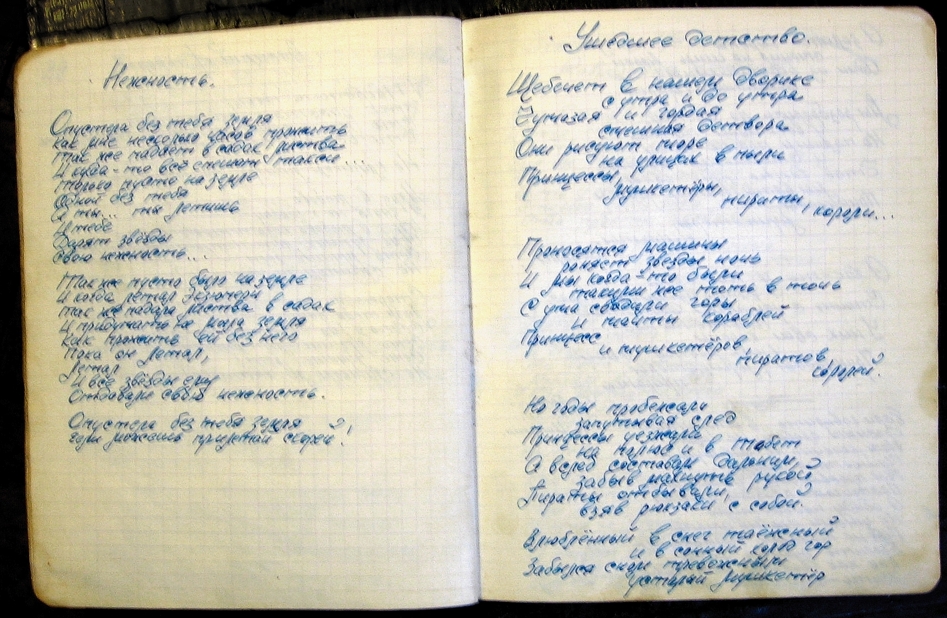 Нежность.
Опустела без тебя земля
Как мне несколько часов прожить
Так же падает в садах листва
И куда-то всё спешат такси...
Только пусто на земле
Одной без тебя
А ты... ты летишь
И тебе
Дарят звёзды
Свою нежность...
Так же пусто было на земле
И когда летал Экзюпери
Так же падала листва в садах
И придумать не могла земля
Как прожить ей без него
Пока он летал,
Летал
И все звёзды ему
Отдавали свою нежность.
Опустела без тебя земля
Если можешь прилетай скорей!
Ушедшее детство.
Щебечет в нашем дворике
с утра и до утра
Чумазая и гордая
смешная детвора
Они рисуют море
на улицах в пыли
Принцессы,
мушкетёры,
пираты, короли...
Проносятся машины
роняет звёзды ночь
И мы когда-то были
такими же точь в точь
С ума сводили горы
и мачты кораблей
Принцесс
и мушкетёров
пиратов
королей.
Но годы пробежали
запутывая след
Принцессы уезжали
на полюс и в Тибет
А вслед составам дальним,
забыв махнуть рукой
Пираты отбывали,
взяв рюкзаки с собой.
Влюблённый в снег таёжный
и в сонный холод гор
Забылся сном тревожным
усталый мушкетёр